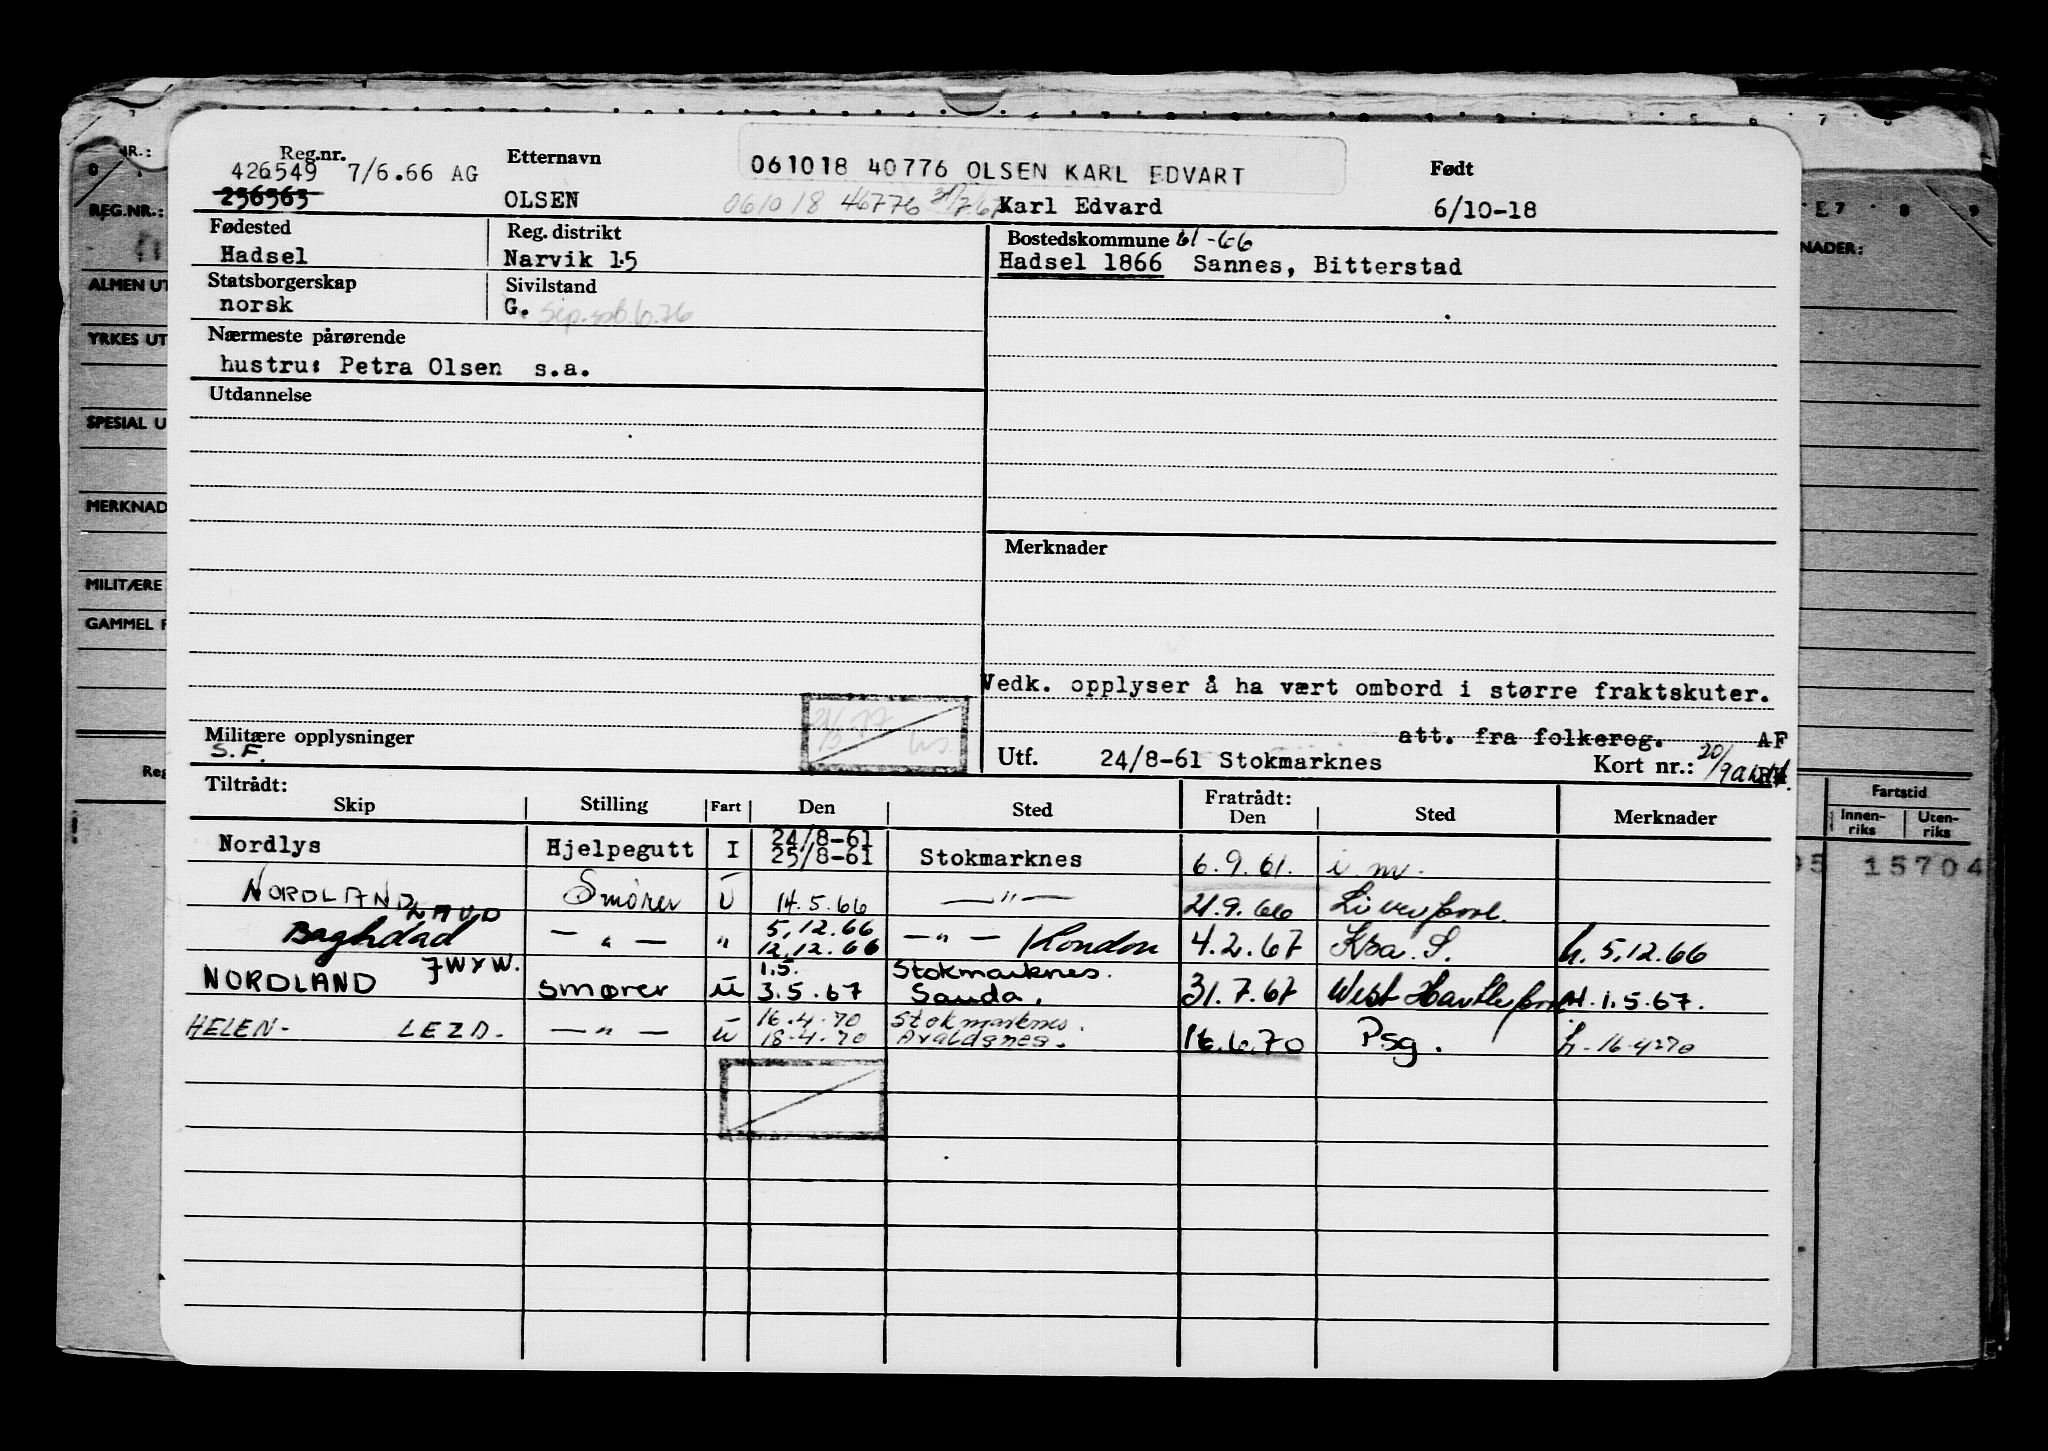 Reg.nr. Etternavn 061018 40776 OLSEN KARL EDVART Født
426549 7/6.66 AG
256563 OLSEN 061018 46776 Karl Edvard 6/10-18
Fødested Reg. distrikt Bostedskommune 61-66
Hadsel Narvik 15 Hadsel 1866 Sannes, Bitterstad
Statsborgerskap Sivilstand
norsk G.
Nærmeste pårørende
hustru: Petra Olsen s.a.
Utdannelse
Merknader
Vedk. opplyser å ha vært ombord i større fraktskuter.
Militære opplysninger att. fra folkereg. AF
S.F. Utf. 24/8-61 Stokmarknes Kort nr.: 20/9
Tiltrådt: Fratrådt:
Skip Stilling Fart Den Sted Den Sted Merknader
24/8-61
Nordlys Hjelpegutt I 25/8-61 Stokmarknes 6.9.61. i.m.
NORDLAND Smører U 14.5.66 —"— 21.9.66 Liverpool.
LAUD 5.12.66
Baghdad —"— " 12.12.66 —"— London 4.2.67 Kra. S. h. 5.12.66
JWYW. 1.5. Stokmarknes.
NORDLAND smører U 3.5.67 Sauda. 31.7.67 West Hartlepool H. 1.5.67.
16.4.70 Stokmarknes.
HELEN- LEZD. —"— U 18.4.70 Avaldsnes. 16.6.70 Psg. h. 16-4-70
NR.:
REG.NR.:
ALMEN UT
YRKES UT
SPESIAL U
MERKNAD
MILITÆRE
GAMMEL F
Reg
NADER:
Fartstid
Innen-riks Uten-riks
15704